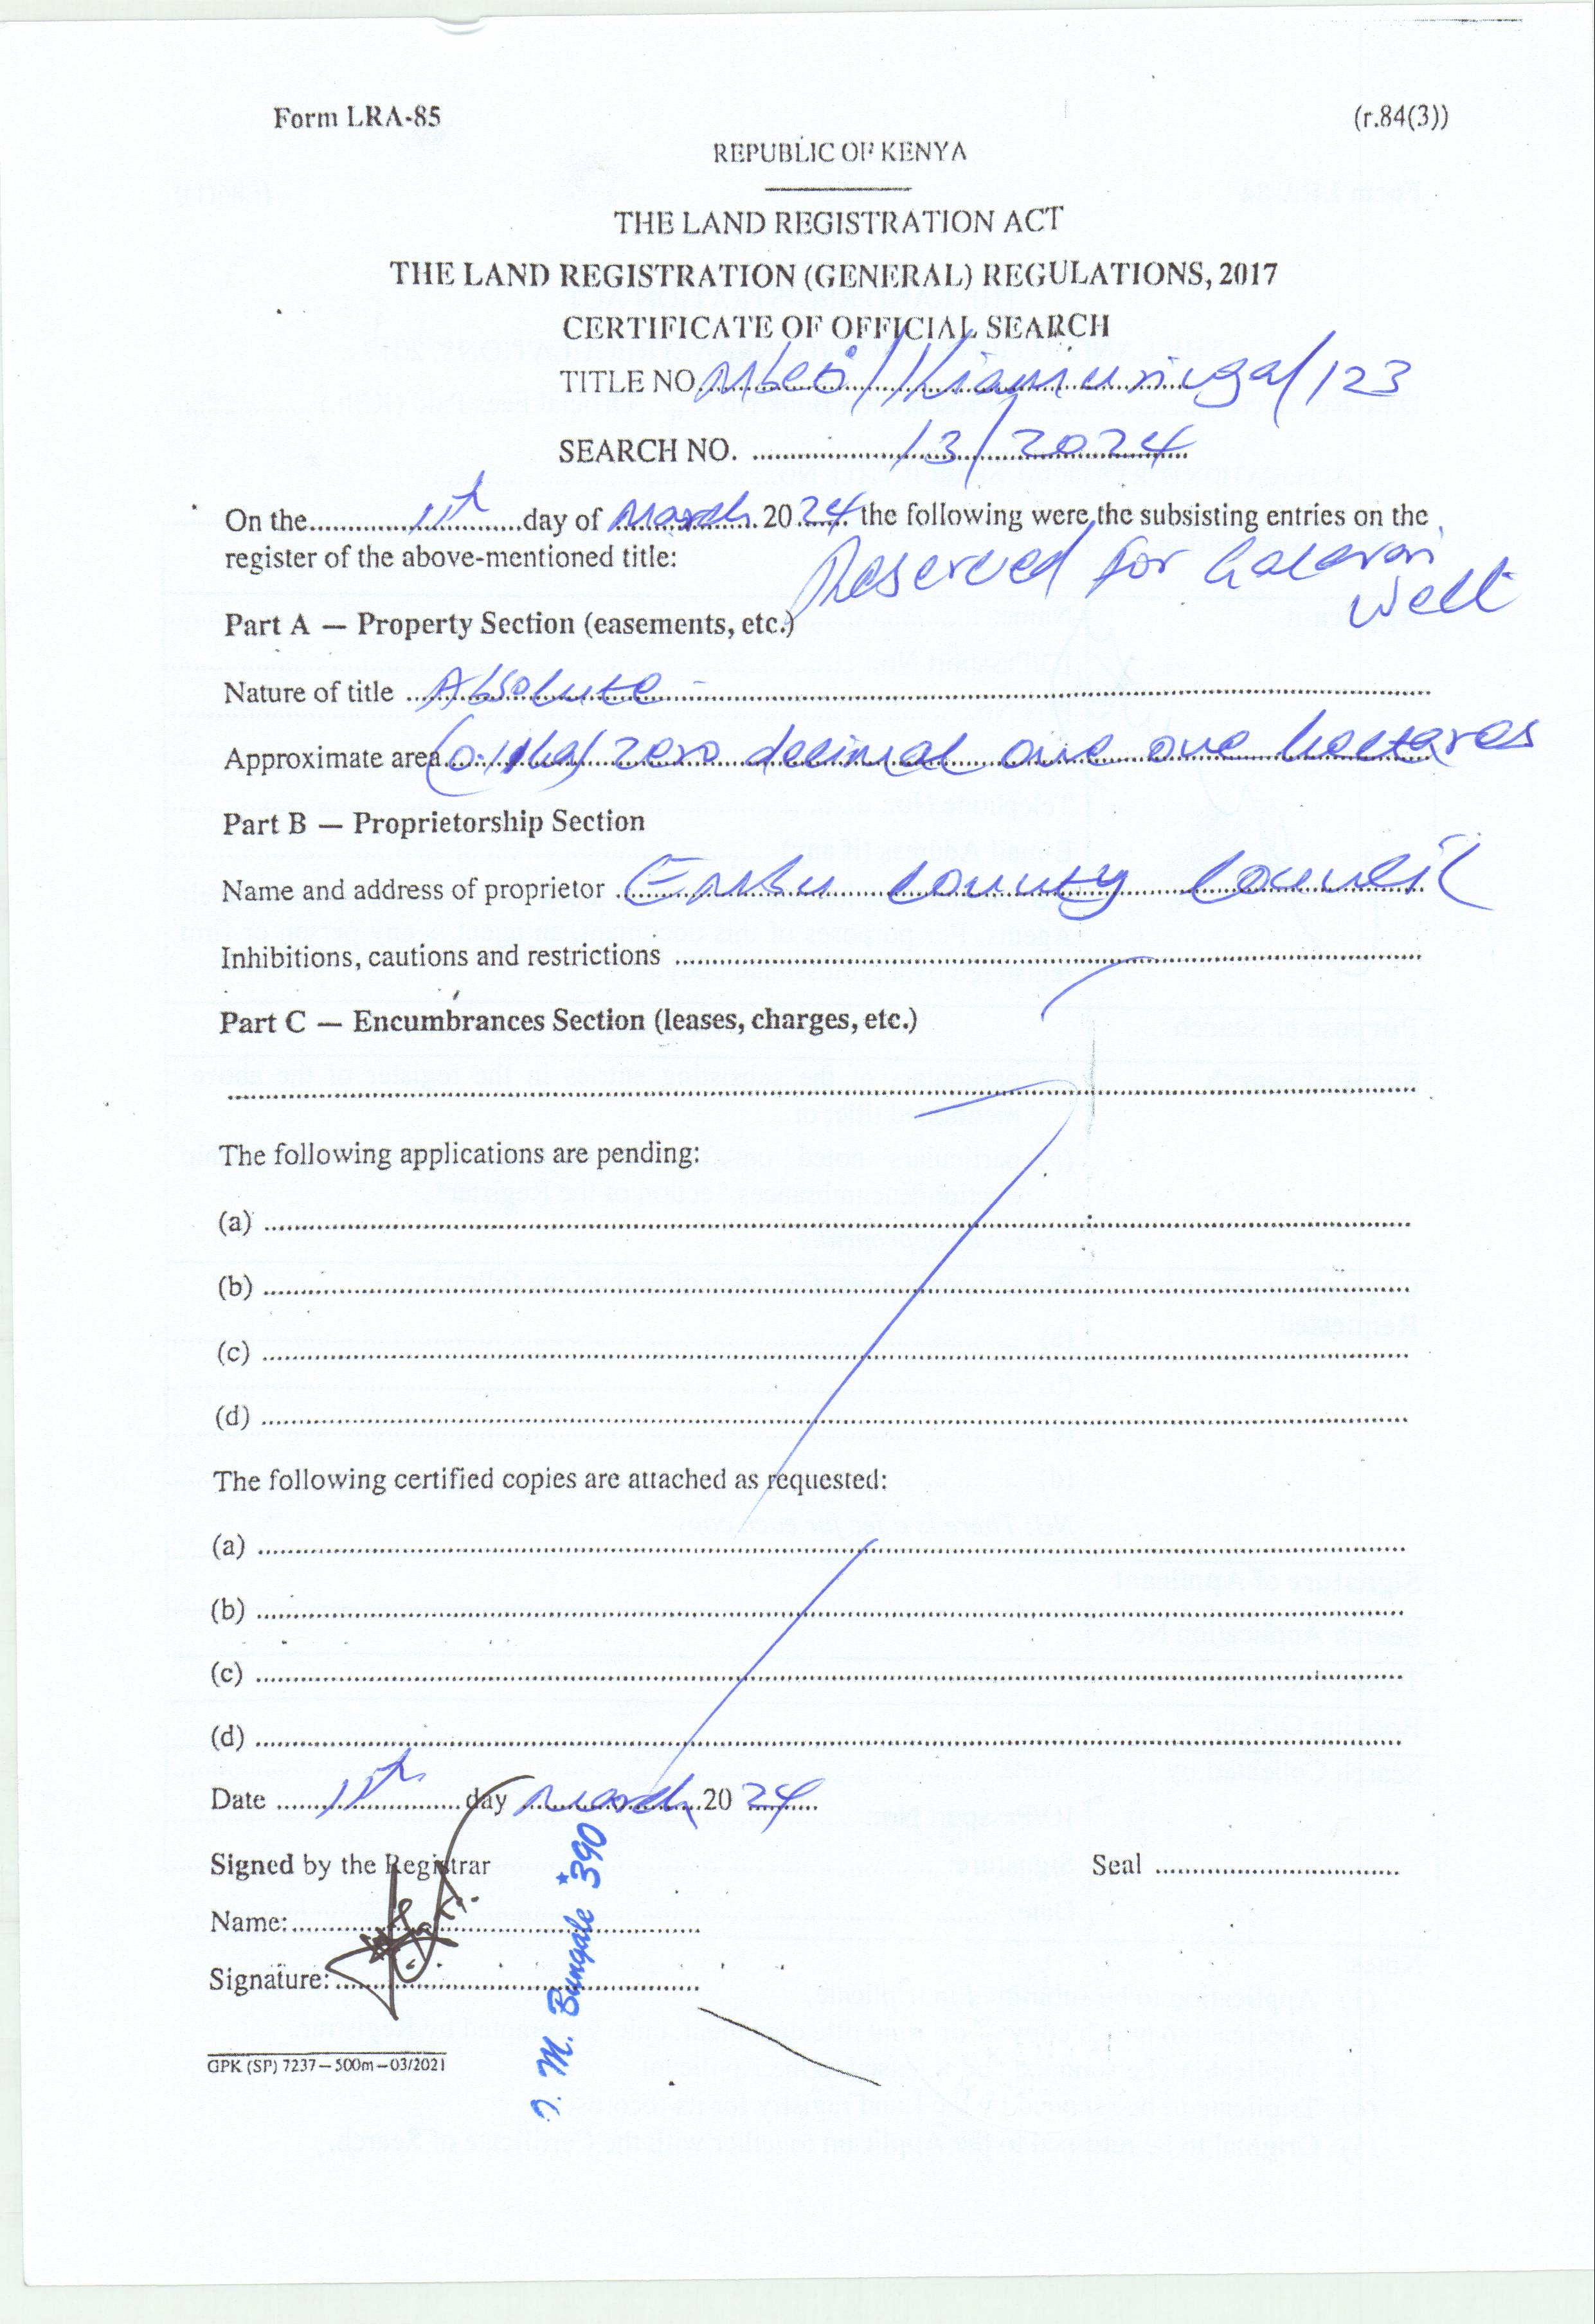 Form LRA-85
(r.84(3))
REPUBLIC OF KENYA
THE LAND REGISTRATION ACT
THE LAND REGISTRATION (GENERAL) REGULATIONS, 2017
CERTIFICATE OF OFFICIAL SEARCH
TITLE NO. Mbeti/Kiamuringa/123
SEARCH NO. 13/2024
On the 11th day of March 2024 the following were the subsisting entries on the
register of the above-mentioned title:
Reserved for
Well
Part A — Property Section (easements, etc.)
Nature of title Absolute
Approximate area (0.11ha) zero decimal one one hectares
Part B — Proprietorship Section
Name and address of proprietor Embu County Council
Inhibitions, cautions and restrictions
Part C — Encumbrances Section (leases, charges, etc.)
The following applications are pending:
(a)
(b)
(c)
(d)
The following certified copies are attached as requested:
(a)
(b)
(c)
(d)
Date 11th day March 2024
Signed by the Registrar
Seal
Name:
Signature:
M. Bungale *390
GPK (SP) 7237—500m—03/2021